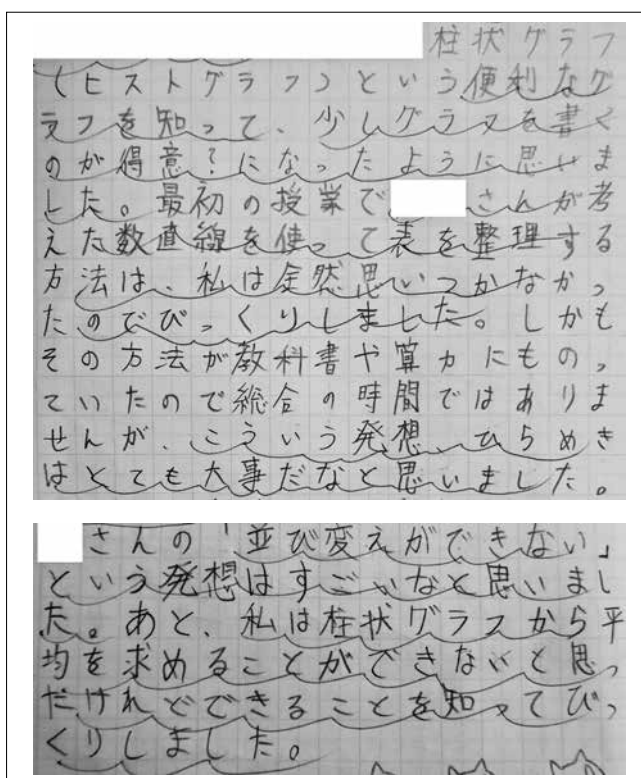 柱状グラフ
(ヒストグラフ)という便利なグ
ラフを知って、少しグラフを書く
のが得意?になったように思いま
した。最初の授業で さんが考
えた数直線を使って表を整理する
方法は、私は全然思いつかなかっ
たのでびっくりしました。しかも
その方法が教科書や算カにものっ
ていたので総合の時間ではありま
せんが、こういう発想、ひらめき
はとても大事だなと思いました。
さんの「並び変えができない」
という発想はすごいなと思いまし
た。あと、私は柱状グラフから平
均を求めることができないと思っ
たけれどできることを知ってびっ
くりしました。